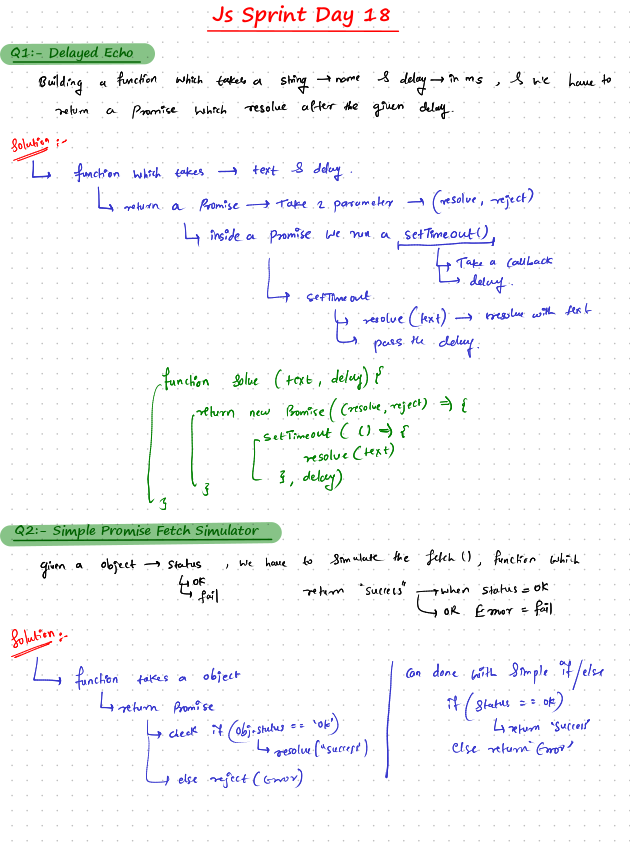 Js Sprint Day 18
Q1:- Delayed Echo
Building a function which takes a string → name & delay → in ms, & we have to
return a Promise which resolve after the given delay.
Solution :-
function which takes → text & delay.
return a Promise → Take 2 parameter → (resolve, reject)
inside a promise we run a setTimeout()
Take a callback
delay.
setTimeout
resolve (text) → resolve with text
pass the delay.
function solve (text, delay) {
return new Promise ((resolve, reject) => {
setTimeout ( () => {
resolve (text)
}, delay)
}
}
Q2:- Simple Promise Fetch Simulator
given a object → status , we have to simulate the fetch(), function which
OK
fail
return "success" → when status = OK
OR Error = fail
Solution :-
function takes a object
return Promise
check if (obj.status == 'ok')
resolve ("success")
else reject (Error)
can done with simple if/else
if (status == ok)
return 'success'
else return 'Error'